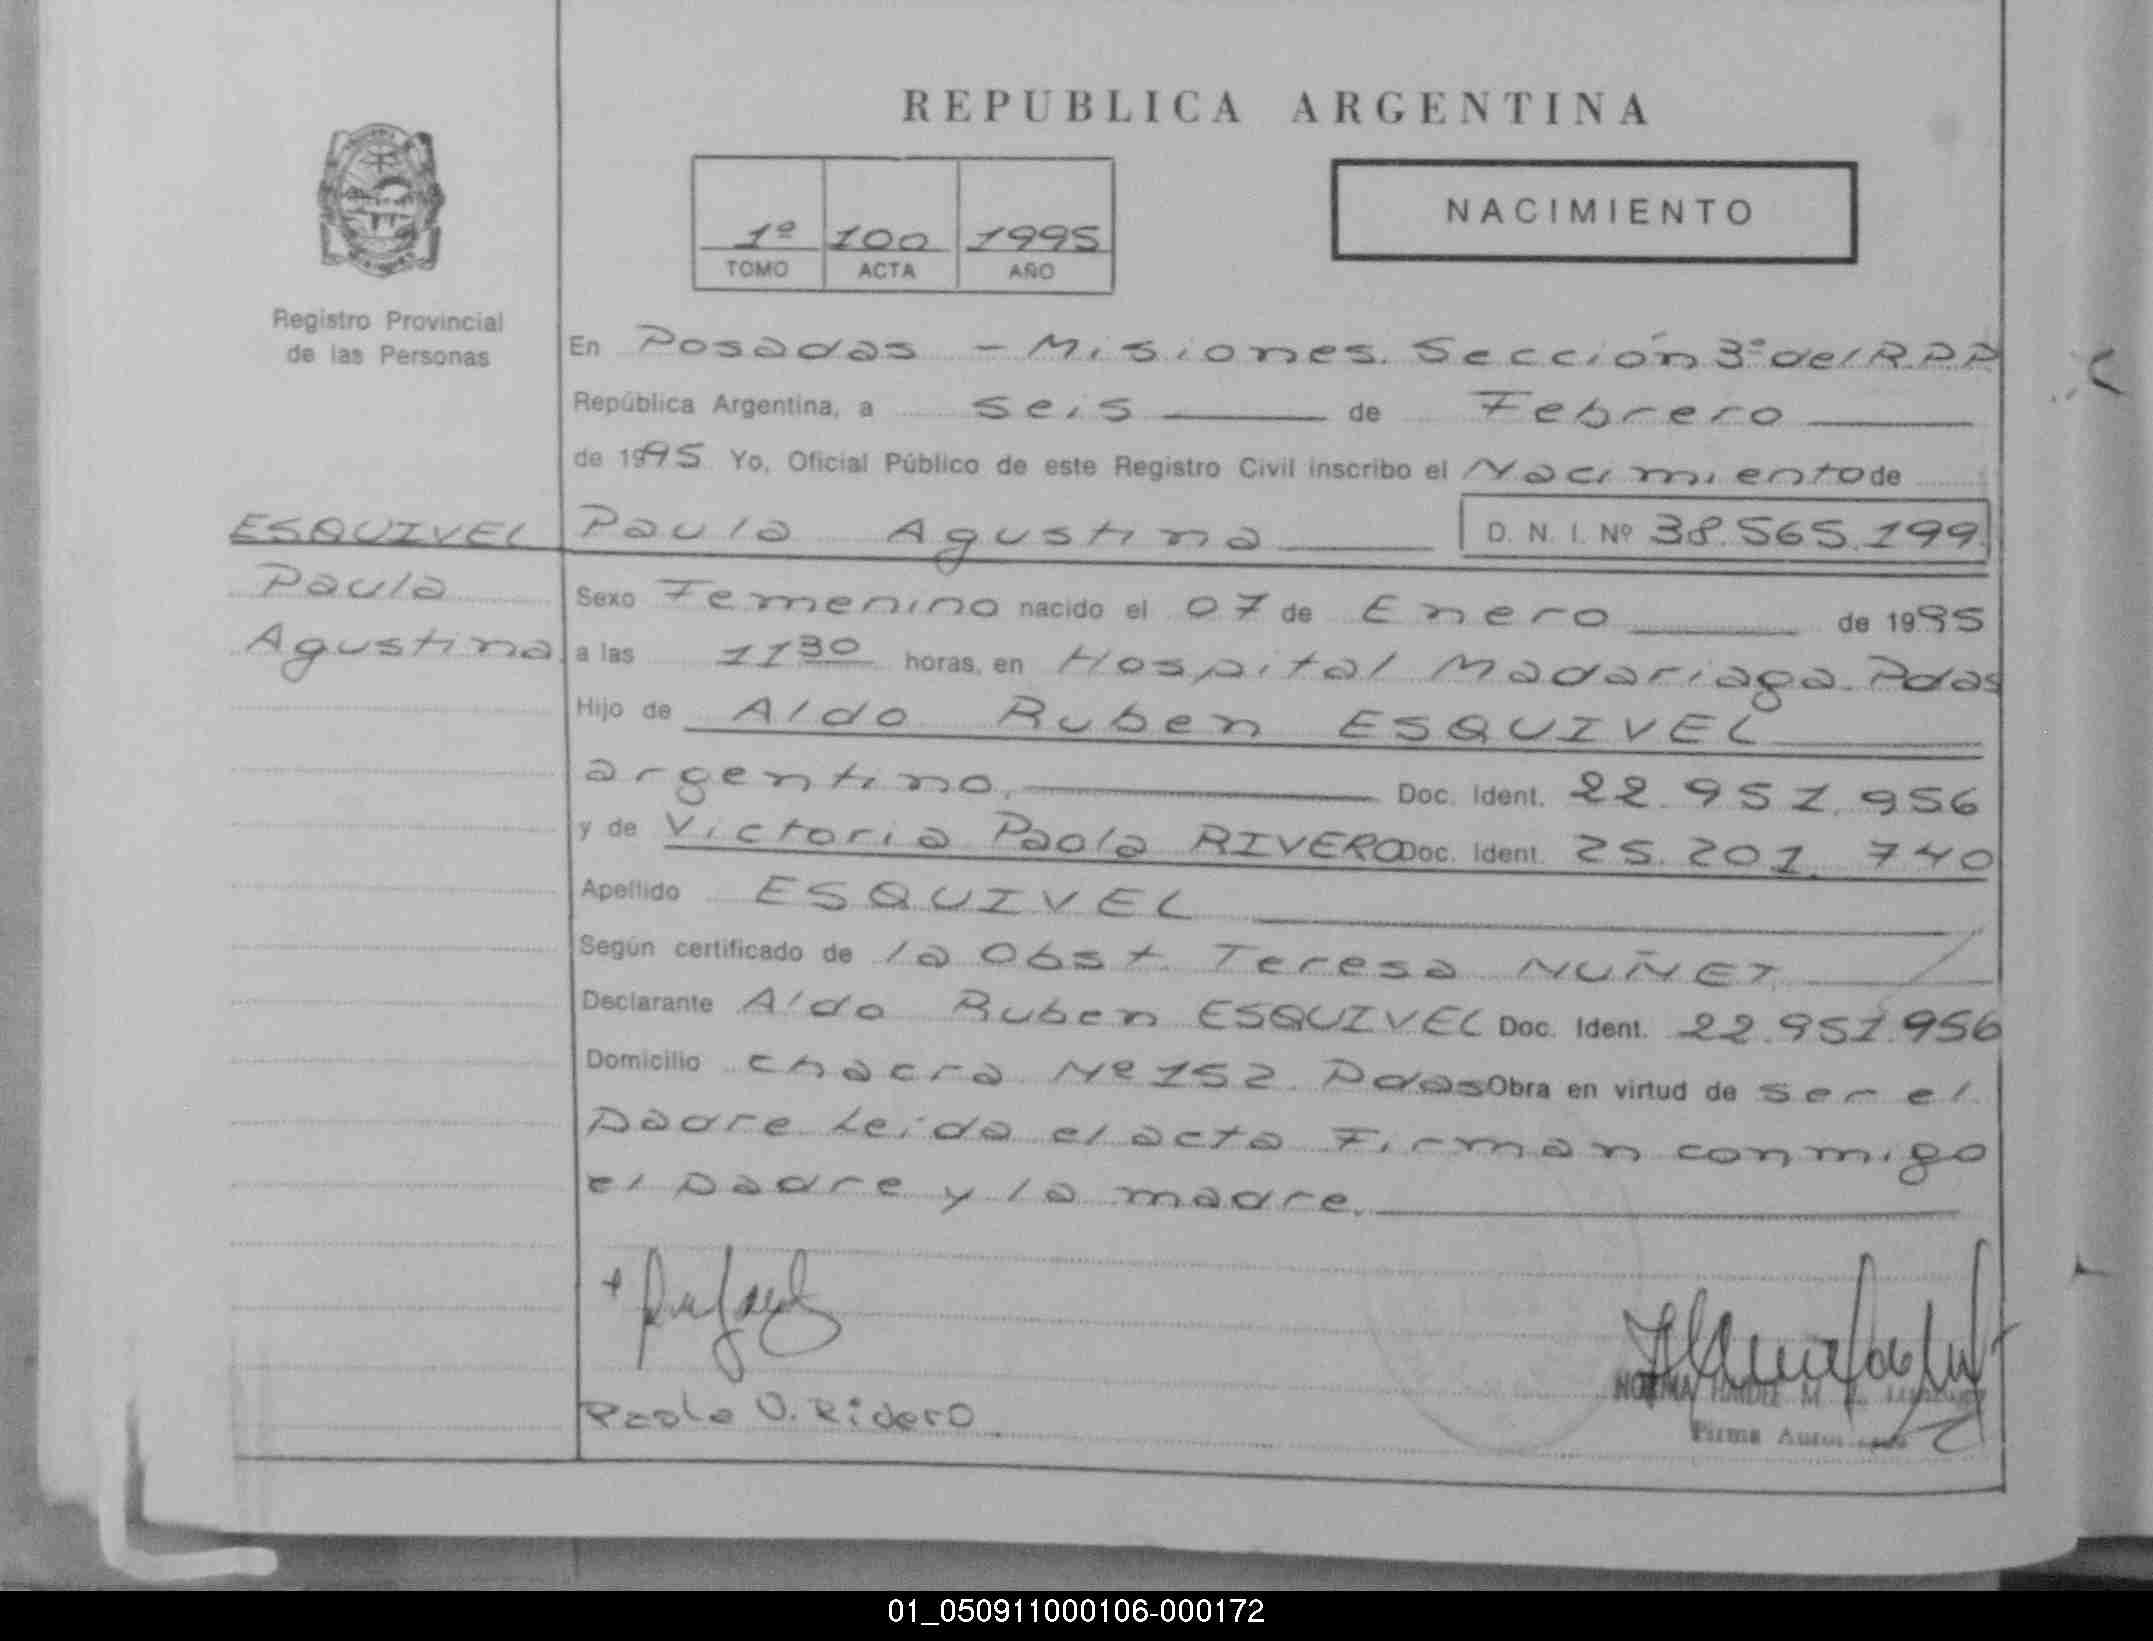 REPUBLICA ARGENTINA
1º 100 1995
TOMO ACTA AÑO
NACIMIENTO
Registro Provincial
de las Personas
En Posadas - Misiones. Sección 3º del R.P.P
República Argentina, a seis de Febrero
de 1995 Yo, Oficial Público de este Registro Civil inscribo el Nacimiento de
ESQUIVEL Paula Agustina D. N. I. Nº 38.565.199
Paula
Agustina
Sexo Femenino nacido el 07 de Enero de 1995
a las 11 30 horas, en Hospital Madariaga. Pdas
Hijo de Aldo Ruben ESQUIVEL
argentino. Doc. Ident. 22.951.956
y de Victoria Paola RIVERO Doc. Ident. 25.201.740
Apellido ESQUIVEL
Según certificado de la Obst. Teresa NUÑEZ
Declarante Aldo Ruben ESQUIVEL Doc. Ident. 22.951.956
Domicilio chacra Nº 152. Pdas Obra en virtud de ser el
padre Leida el acta Firman conmigo
el padre y la madre.
Paola V. Rivero
NORMA HAIDEE M.
Firma
01_050911000106-000172